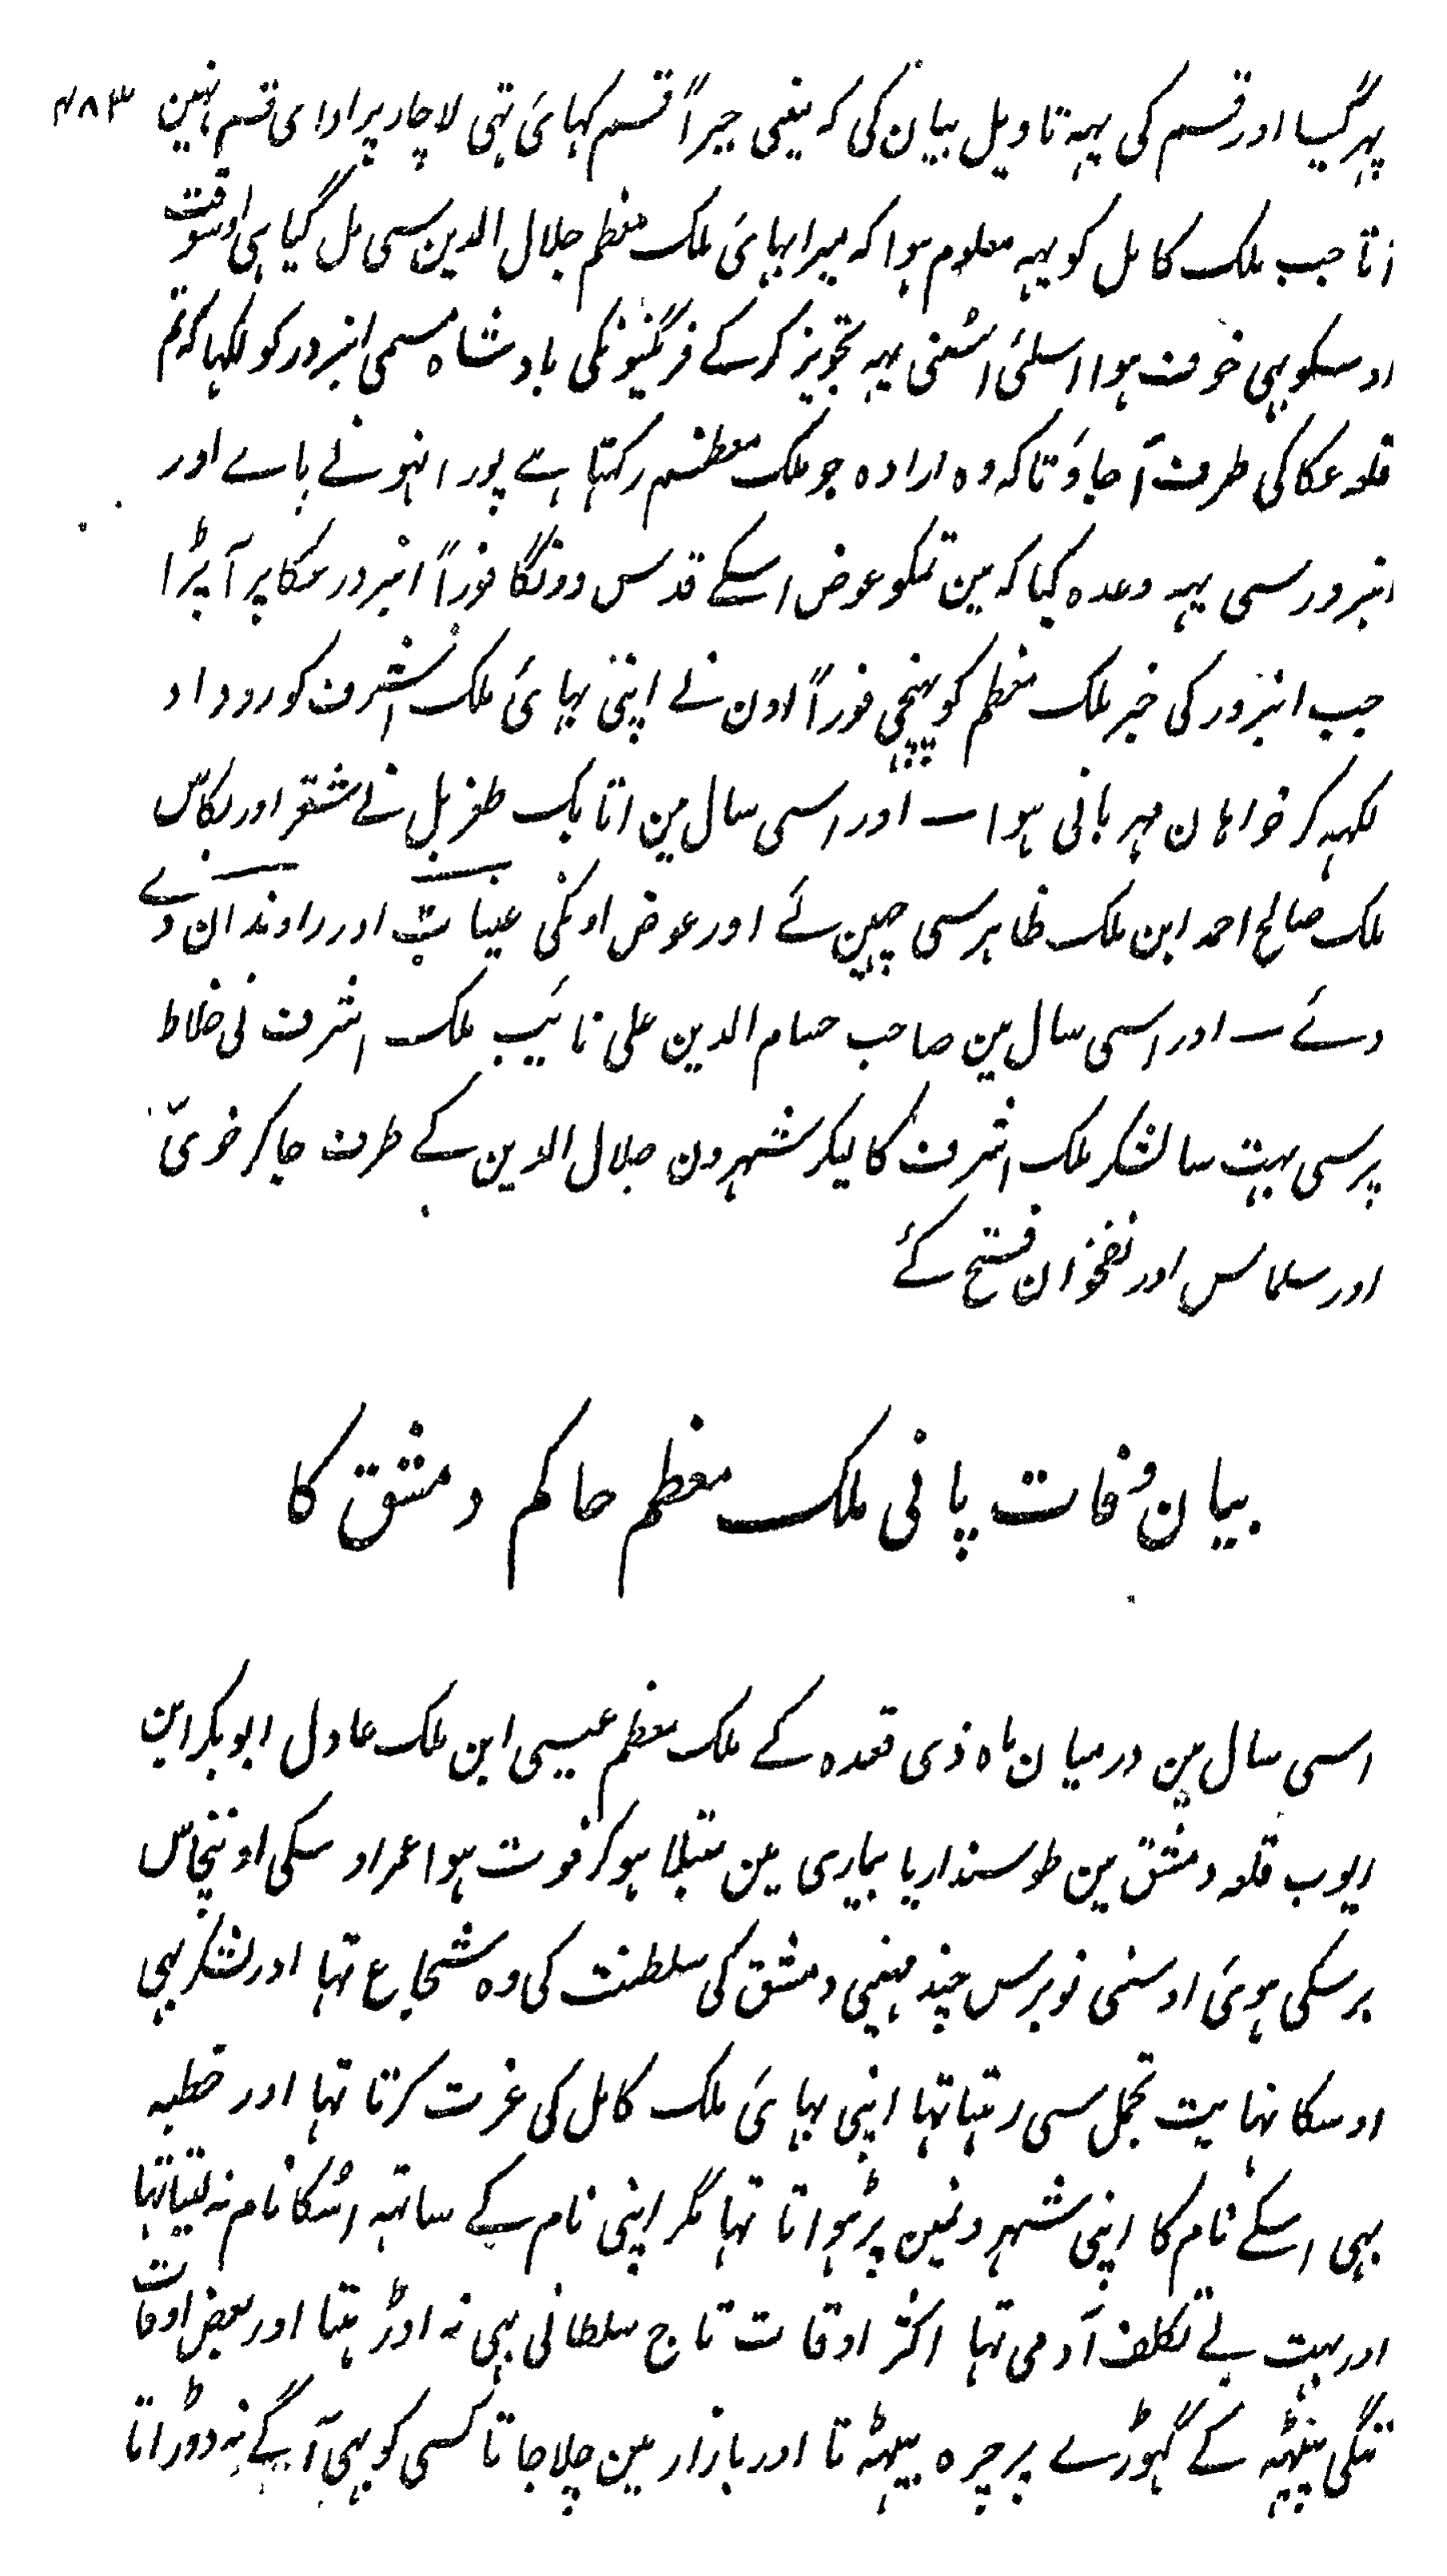 پہر گیا اور قسم کی یہہ تاویل بیان کی کہ مینی جبراً قسم کہائی تہی لاچار پر ادای قسم نہین ۴۸۳
اتا جب ملک کامل کو یہہ معلوم ہوا کہ میرا بہائی ملک معظم جلال الدین سی مل گیا ہی اوسوقت
اوسکو بہی خوف ہوا اسلئی اسنی یہہ تجویز کرکے فرنگیونکی بادشاہ مسمی انبرور کو لکہا کہ تم
قلعہ عکا کی طرف آجاؤ تاکہ وہ ارادہ جو ملک معظم رکہتا ہے پورا نہونے پاے اور
انبرور سی یہہ وعدہ کیا کہ مین تمکو عوض اسکے قدس دونگا فوراً انبرور عکا پر آ پڑا
جب انبرور کی خبر ملک معظم کو پہنچی فوراً اون نے اپنی بہائی ملک اشرف کو روداد
لکہہ کر خواہان مہربانی ہوا ـ اور اسی سال مین اتابک طغربل نے شغر اور بکاس
ملک صالح احمد ابن ملک ظاہر سی چہین لئے اور عوض اونکی عینتاب اور راوندان دے
دئے ـ اور اسی سال مین صاحب حسام الدین علی نائیب ملک اشرف نی خلاط
پر سی بہت سا لشکر ملک اشرف کا لیکر شہرون جلال الدین کے طرف جا کر خوی
اور سلماس اور نقجوان فتح کئے
بیان وفات پانی ملک معظم حاکم دمشق کا
اسی سال مین درمیان ماہ ذی قعدہ کے ملک معظم عیسی ابن ملک عادل ابوبکر ابن
ایوب قلعہ دمشق مین طوسنداریا بیماری مین مبتلا ہو کر فوت ہوا عمر اوسکی اونچاس
برسکی ہوئی اوسنی نو برس چند مہینی دمشق کی سلطنت کی وہ شجاع تہا اور لشکر بہی
اوسکا نہایت تجمل سی رہتا تہا اپنی بہائی ملک کامل کی عزت کرتا تہا اور خطبہ
بہی اسکے نام کا اپنی شہرونمین پڑہواتا تہا مگر اپنی نام کے ساتہہ اسکا نام نہ لیتا تہا
اور بہت بے تکلف آدمی تہا اکثر اوقات تاج سلطانی بہی نہ اوڑہتا اور بعض اوقات
ننگی پیٹہہ کے گہوڑے پر چرہ بیٹہتا اور بازار مین چلا جاتا کسی کو بہی آگے نہ دوڑاتا